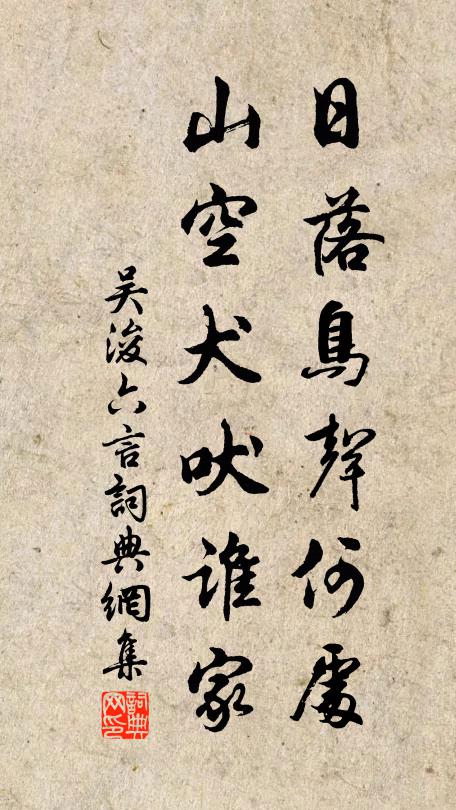 日落鳥聲何處
山空犬吠誰家
吴浚六言詞典網集
詞典网印